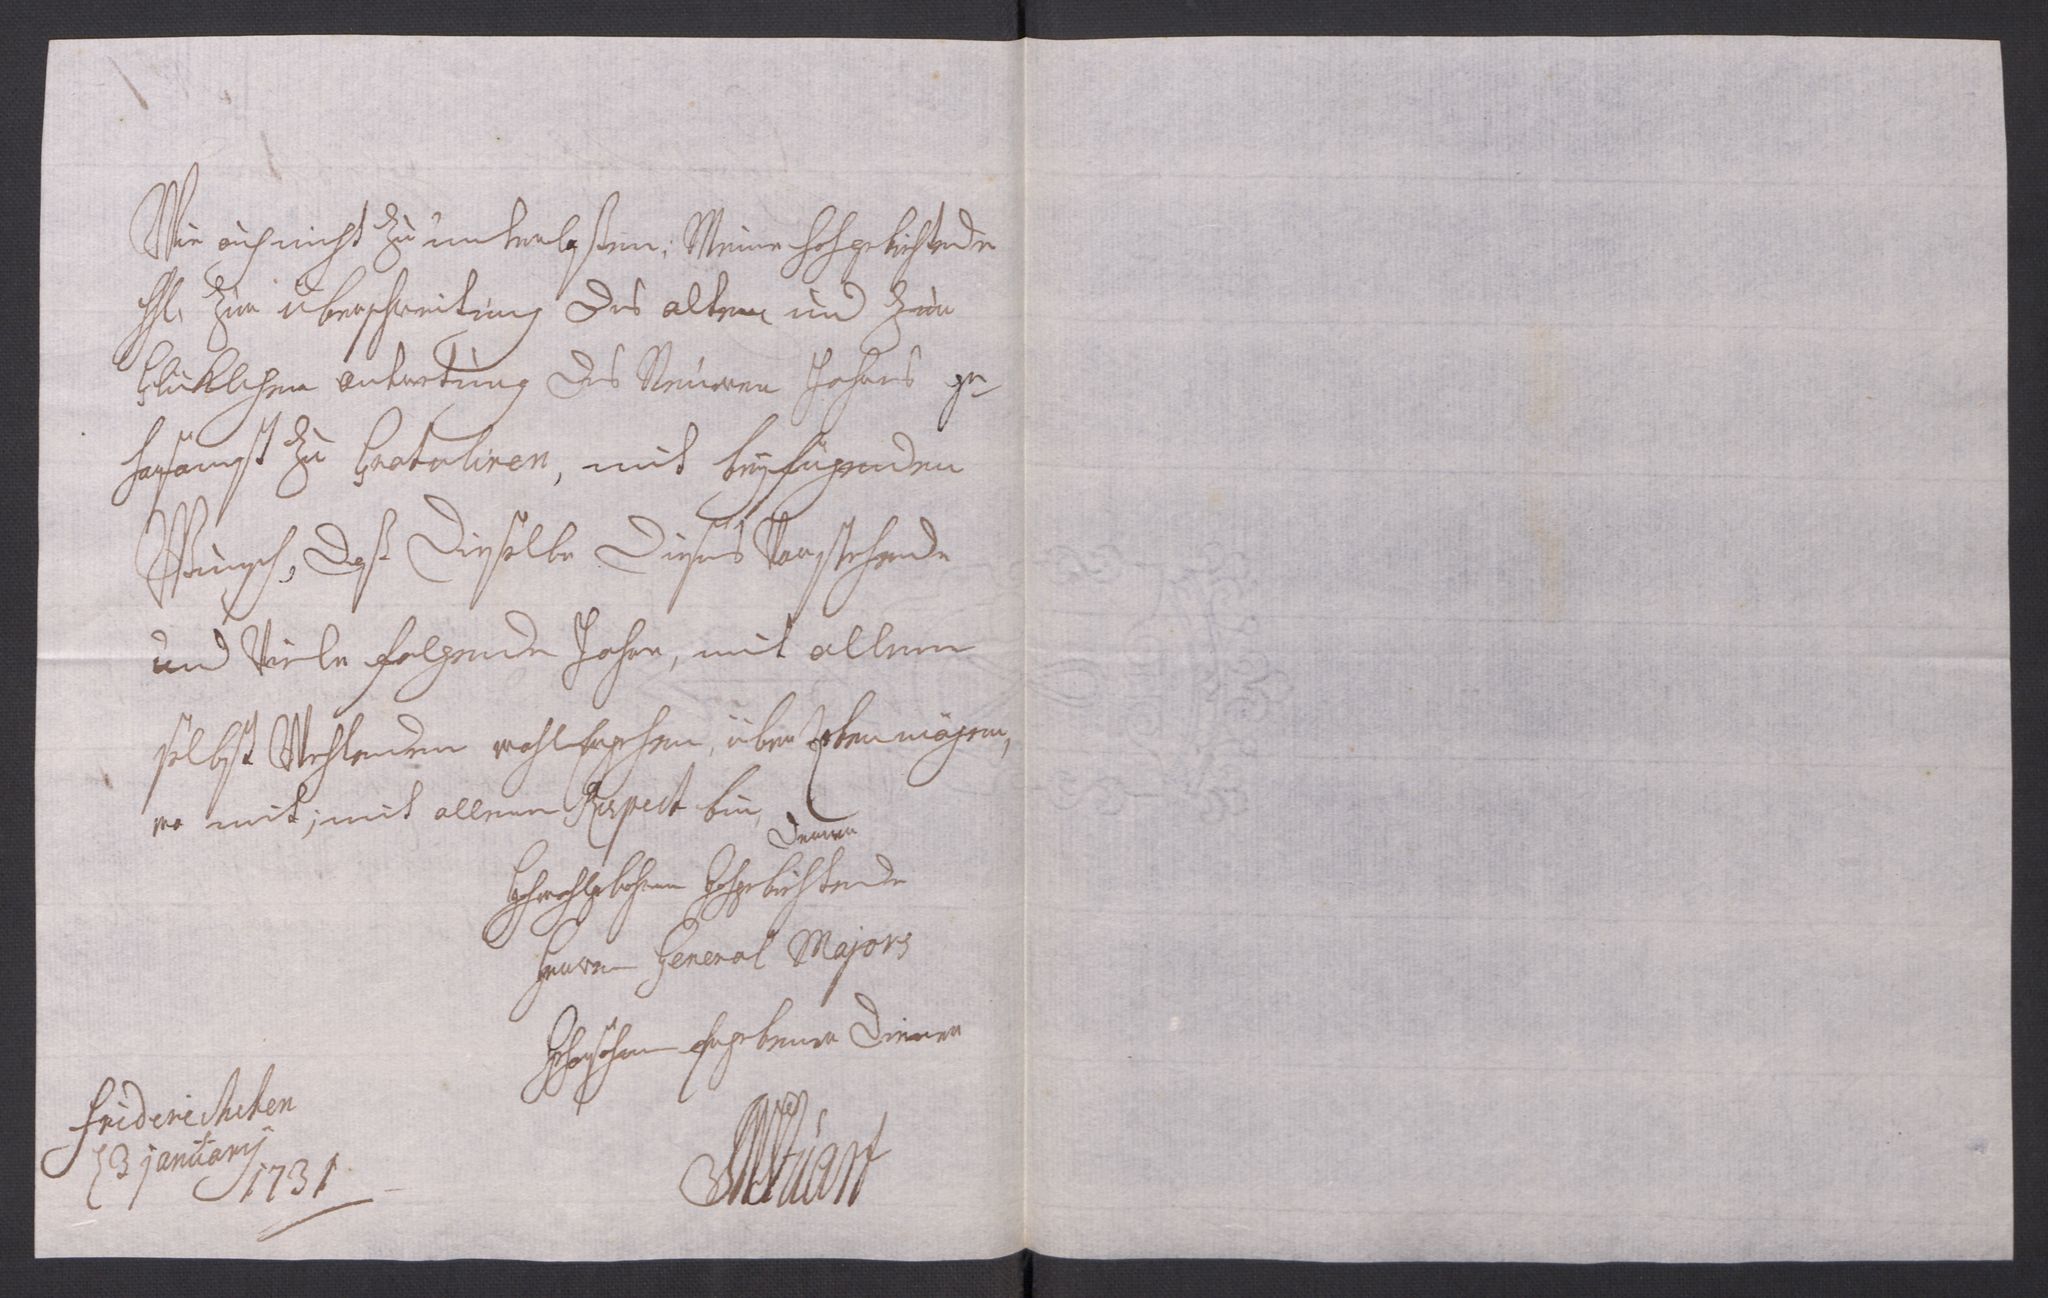 Wie auch nicht zu unterlaßen; Meine hochgebiethende
HH. zur überschreitung des alten und zur
Glücklichen antretung des Neüwen Jahres ge-
horsamst zu Gratuliren, mit beyfügenden
Wunsch, daß Dieselbe Dieses Vorstehende
und Viele folgende Jahre, mit allem
selbst Wehlenden wohlergehen, über leben mögen,
wo mit, mit allem Respect bin,
Deroer
Hochwohlgebohrnen Hochgebiethende
Herren General Majors
Gehorsahm ergebener Diener
Stüart
frideric
3 januarij
1731